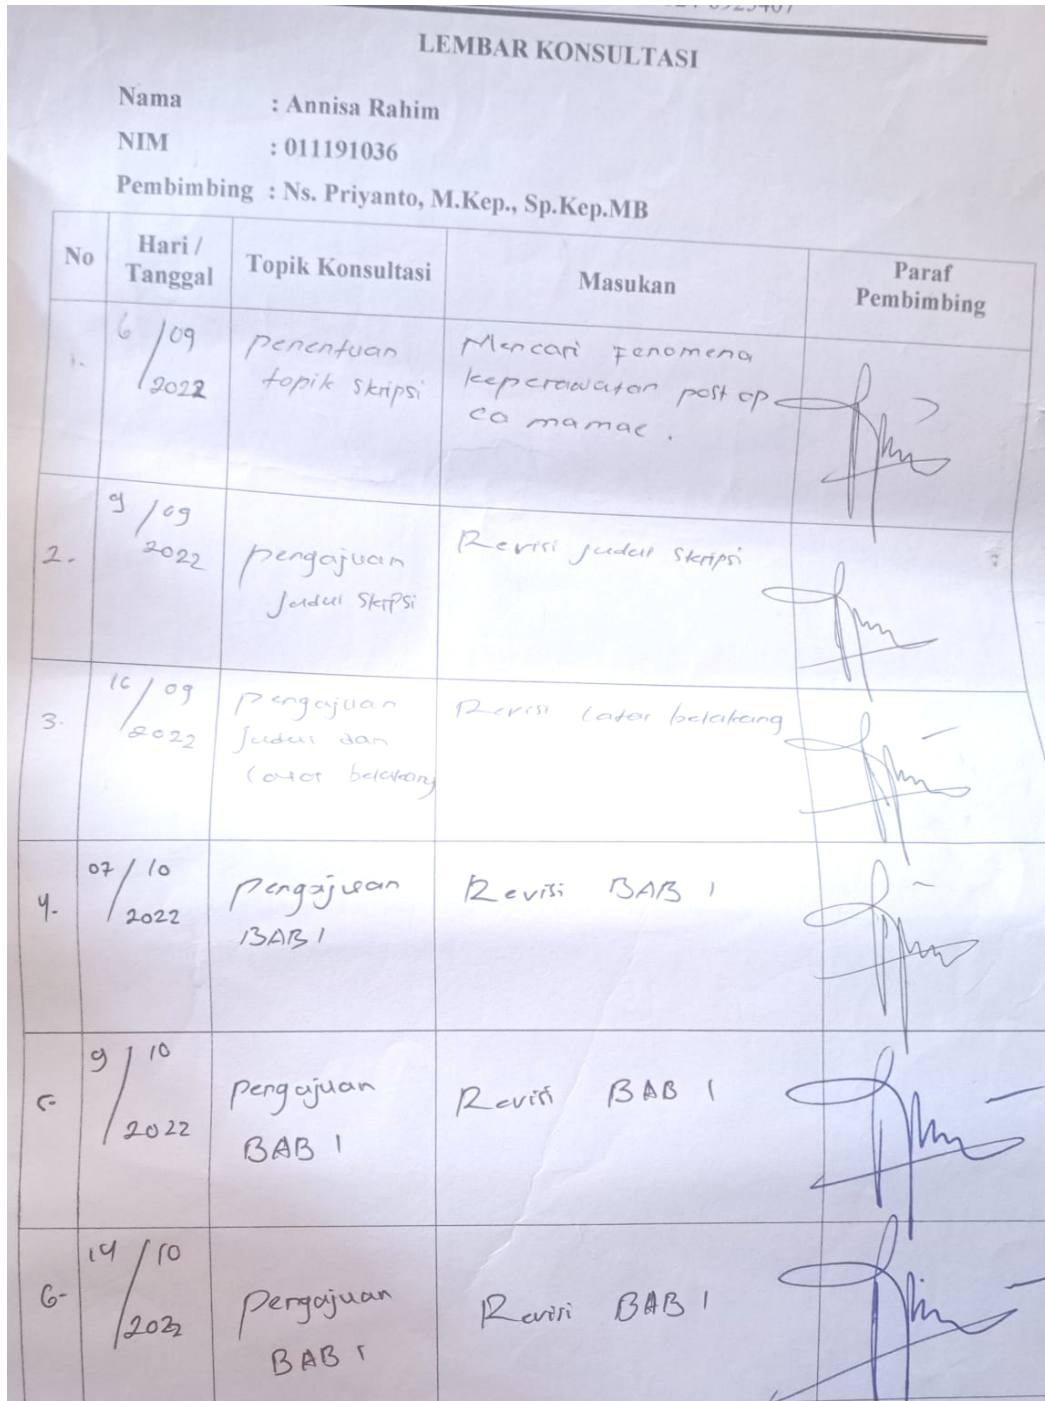 LEMBAR KONSULTASI
Nama : Annisa Rahim
NIM : 011191036
Pembimbing : Ns. Priyanto, M.Kep., Sp.Kep.MB
No
Hari /
Tanggal
Topik Konsultasi
Masukan
Paraf
Pembimbing
1.
6/09
2022
Penentuan
topik skripsi
Mencari Fenomena
keperawatan post op
ca mamae.
2.
9/09
2022
pengajuan
Judul Skripsi
Revisi judul skripsi
3.
16/09
2022
Pengajuan
Judul dan
Latar belakang
Revisi latar belakang
4.
07/10
2022
Pengajuan
BAB I
Revisi BAB I
5-
9/10
2022
Pengajuan
BAB I
Revisi BAB I
6-
14/10
2022
Pengajuan
BAB I
Revisi BAB I